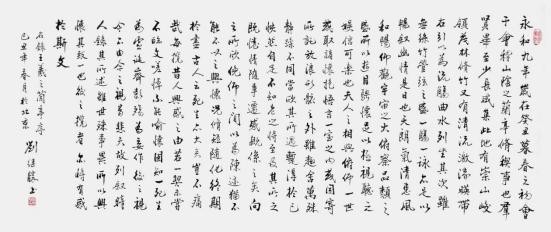 永和九年歲在癸丑暮春之初會
于會稽山陰之蘭亭脩稧事也群
賢畢至少長咸集此地有崇山峻
領茂林脩竹又有清流激湍暎帶
左右引以為流觴曲水列坐其次雖
無絲竹管弦之盛一觴一詠亦足以
暢敘幽情是日也天朗氣清惠風
和暢仰觀宇宙之大俯察品類之
盛所以遊目騁懷足以極視聽之
娛信可樂也夫人之相與俯仰一世
或取諸懷抱悟言一室之內或因寄
所託放浪形骸之外雖趣舍萬殊
靜躁不同當其欣於所遇暫得於己
怏然自足不知老之將至及其所之
既惓情隨事遷感慨係之矣向
之所欣俛仰之間以為陳迹猶不
能不以之興懷況脩短隨化終期
於盡古人云死生亦大矣豈不痛
哉每攬昔人興感之由若合一契未嘗
不臨文嗟悼不能喻之於懷固知一死生
為虛誕齊彭殤為妄作後之視
今亦由今之視昔悲夫故列敘時
人錄其所述雖世殊事異所以興
懷其致一也後之攬者亦將有感
於斯文
右錄王羲之蘭亭序
己丑年春月於北京 劉 書